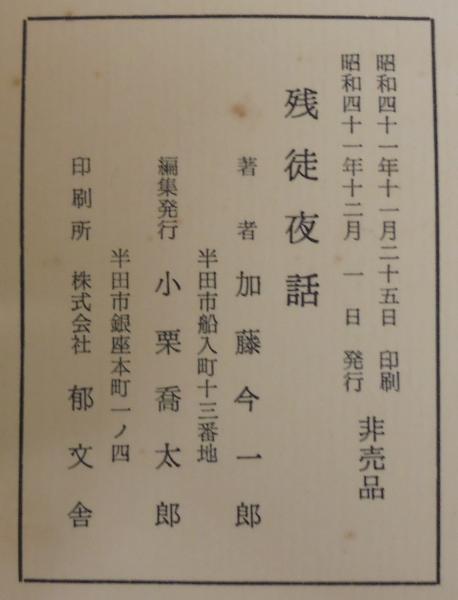 昭和四十一年十一月二十五日 印刷
昭和四十一年十二月 一日 発行
非売品
残徒夜話
著者 加藤今一郎
半田市船入町十三番地
編集発行 小栗喬太郎
半田市銀座本町一ノ四
印刷所 株式会社 郁文舎